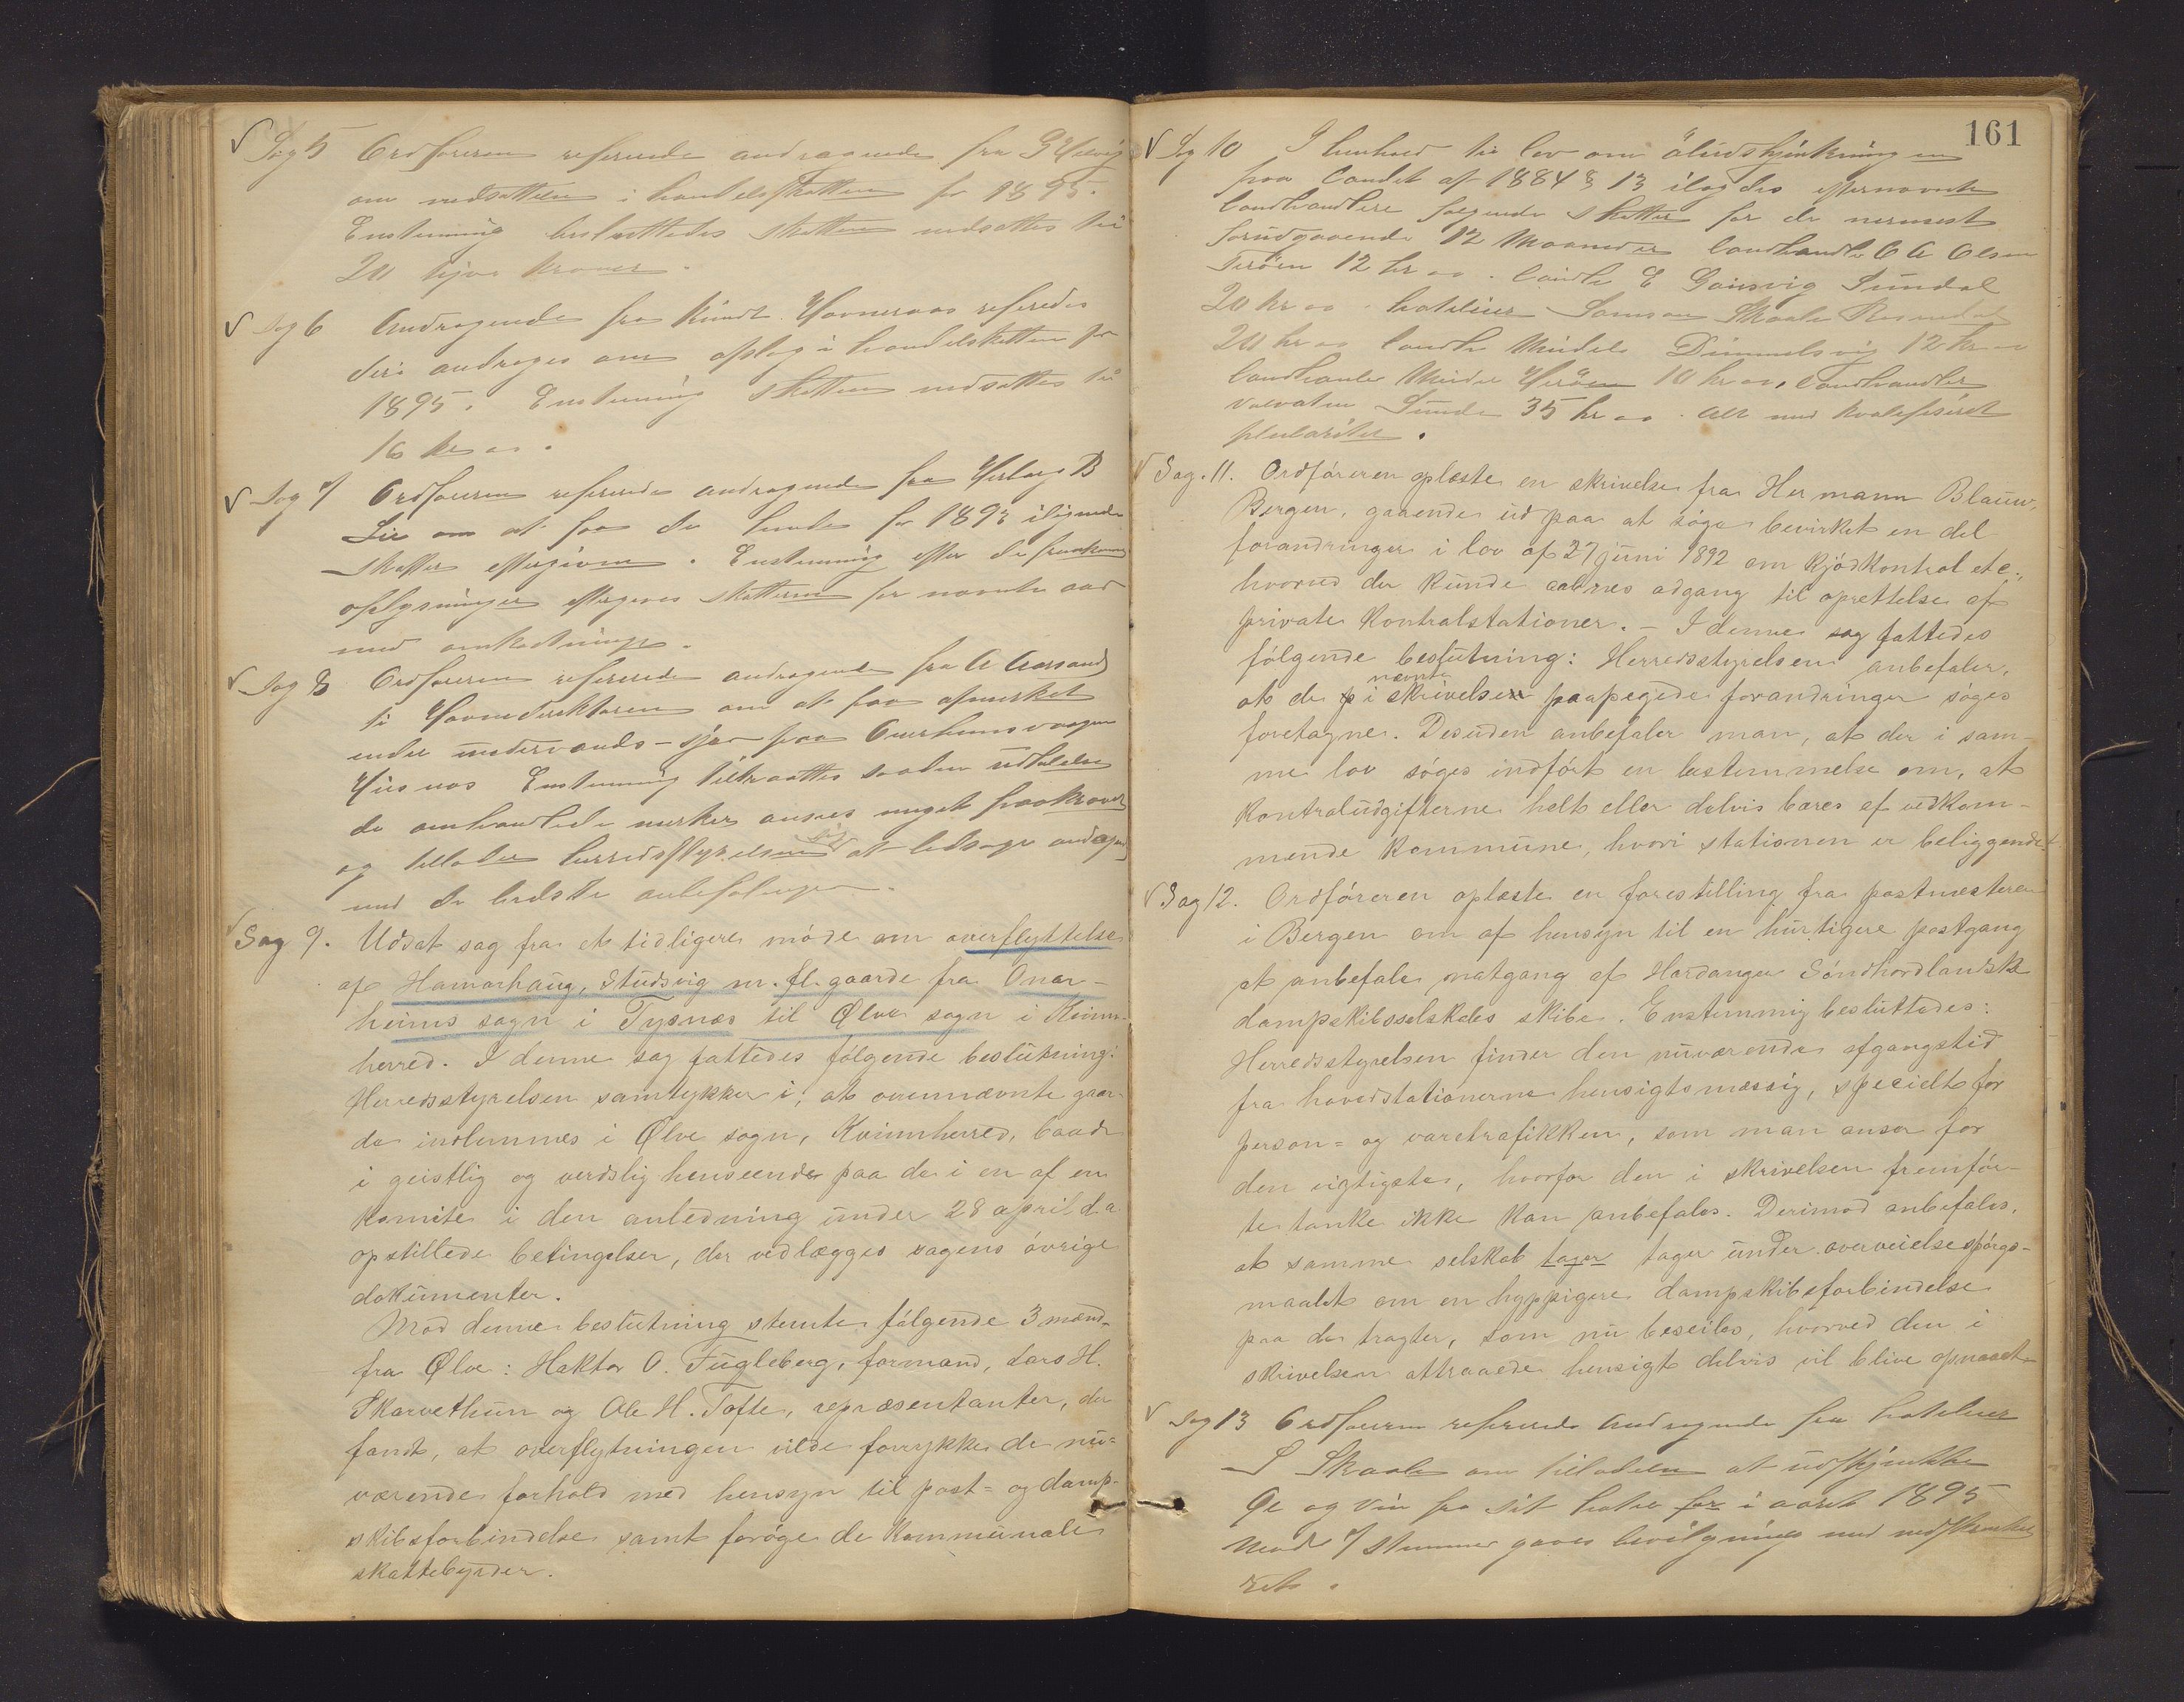 Sag 5 Ordføreren refererede andragende fra G Helvig
om nedsættelse i handelsskatten for 1895.
Enstemmig besluttedes skatten nedsættes til
20 tjve kroner.
Sag 6 Andragende fra Knudt Havneraas referedes
der andrages om afslag i handelsskatten for
1895. Enstemmig skatten nedsættes til
16 kr oo.
Sag 7 Ordføreren refererede andragende fra B
Lie om at faa de for 1893 ilignede
skatter eftergivne. Enstemmig efter de fremkomne
oplysninger eftergives skatterne for nævnte aar
med omkostninger.
Sag 8 Ordføreren refererede andragende fra A Aarsand
til Havnedirektøren om at faa afmerket
endel undervands-sjær paa
Husnes Enstemmig tiltraattes saadan udtalelse
de omhandlede merker ansees meget paakrævet
og tillader herredsstyrelsen sig at ledsage andragendet
med de bedste anbefalinger.
Sag 9. Udsat sag fra et tidligere møde om overflyttelse
af Hamarhaug, Studsvig m. fl. gaarde fra Onar-
heims sogn i Tysnæs til Ølve sogn i Kvinn-
herred. I denne sag fattedes følgende beslutning:
Herredsstyrelsen samtykker i, at ovennævnte gaar-
de indlemmes i Ølve sogn, Kvinnherred, baade
i geistlig og verdslig henseende paa de i en af en
komite i den anledning under 28 april d. a.
opstillede betingelser, der vedlægges sagens øvrige
dokumenter.
Mod denne beslutning stemte følgende 3 mænd
fra Ølve: Hektor O. Fugleberg, formand, Lars H.
Skarvethun og Ole H. Tofte, repræsentanter, der
fandt, at overflytningen vilde forrykke de nu-
værende forhold med hensyn til post- og damp-
skibsforbindelse samt forøge de kommunale
skattebyrder.
161
Sag 10 I henhold til lov om öludskjænkningen
paa landet af 1884 § 13 ilagdes efternævnte
landhandlere følgende skatter for de nærmest
forudgaaende 12 Maaneder landhandle C A Olsen
Terøen 12 kr oo. landh E Gausvig Sundal
20 kr oo hotelier Samson Skaale Rosendal
20 kr oo landh Mindel Dimmelsvig 12 kr oo
landhandler Herøen 10 kr oo, landhandler
Valvatne Sunde 35 kr oo. alt med kvalificeret
pluraritet.
Sag. 11. Ordføreren oplæste en skrivelse fra Hermann Blauw,
Bergen, gaaende ud paa at søge bevirket en del
forandringer i lov af 27 juni 1892 om kjødkontrol etc.,
hvorved der kunde aabnes adgang til oprettelse af
private kontrolstationer. – I denne sag fattedes
følgende beslutning: Herredsstyrelsen anbefaler,
at de i nævnte skrivelse paapegede forandringer søges
foretagne. Desuden anbefaler man, at der i sam-
me lov søges indført en bestemmelse om, at
kontroludgifterne helt eller delvis bæres af vedkom-
mende kommune, hvori stationen er beliggendet.
Sag 12. Ordføreren oplæste en forestilling fra postmesteren
i Bergen om af hensyn til en hurtigere postgang
at anbefale natgang af Hardanger Söndhordlandske
dampskibsselskabs skibe. Enstemmig besluttedes:
Herredsstyrelsen finder den nuværende afgangstid
fra hovedstationerne hensigtsmæssig, specielt for
person- og varetrafikken, som man anser for
den vigtigste, hvorfor den i skrivelsen fremför-
te tanke ikke kan anbefales. Derimod anbefales,
at samme selskab tager tager under overveielse spørgs-
maalet om en hyppigere dampskibsforbindelse
paa de tragter, som nu beseiles, hvorved den i
skrivelsen attraaede hensigt delvis vil blive opnaaet.
Sag 13 Ordføreren refererede Andragende fra hotelier
S Skaale om tilladelse at udskjænke
Øl og Vin fra sit hotel for i aaret 1895
Mod 7 stemmer gaves bevilgning med
ret.